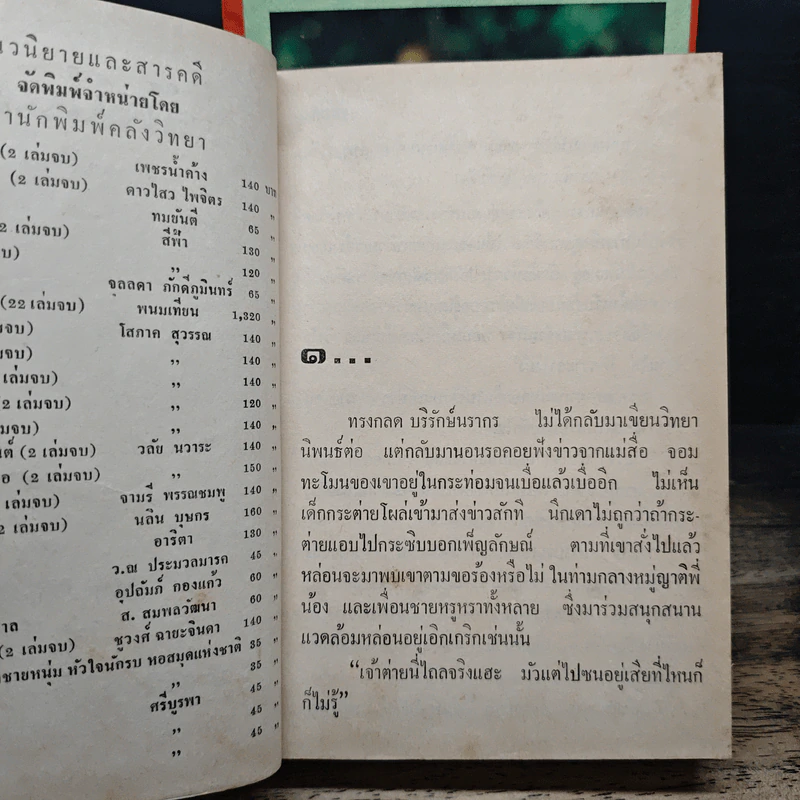 นวนิยายและสารคดี
จัดพิมพ์จำหน่ายโดย
านักพิมพ์คลังวิทยา
(2 เล่มจบ) เพชรน้ำค้าง 140 บาท
(2 เล่มจบ) ดาวไสว ไพจิตร 140 ,,
ทมยันตี 65 ,,
2 เล่มจบ) สีฟ้า 130 ,,
บ) ,, 120 ,,
จุลลดา ภักดีภูมินทร์ 65 ,,
(22 เล่มจบ) พนมเทียน 1,320 ,,
เล่มจบ) โสภาค สุวรรณ 140 ,,
เล่มจบ) ,, 140 ,,
เล่มจบ) ,, 140 ,,
(2 เล่มจบ) ,, 120 ,,
เล่มจบ) ,, 140 ,,
ต์ (2 เล่มจบ) วลัย นวาระ 140 ,,
อ (2 เล่มจบ) ,, 150 ,,
เล่มจบ) จามรี พรรณชมพู 140 ,,
(2 เล่มจบ) นลิน บุษกร 160 ,,
อาริตา 130 ,,
ว.ณ ประมวลมารค 45 ,,
อุปถัมภ์ กองแก้ว 60 ,,
าล ส. สมพลวัฒนา 60 ,,
(2 เล่มจบ) ชูวงศ์ ฉายะจินดา 140 ,,
ชายหนุ่ม หัวใจนักรบ หอสมุดแห่งชาติ 35 ,,
,, 35 ,,
ศรีบูรพา 45 ,,
,, 45 ,,
,, 45 ,,
๑...
ทรงกลด บริรักษ์นรากร ไม่ได้กลับมาเขียนวิทยา
นิพนธ์ต่อ แต่กลับมานอนรอคอยฟังข่าวจากแม่สื่อ จอม
ทะโมนของเขาอยู่ในกระท่อมจนเบื่อแล้วเบื่ออีก ไม่เห็น
เด็กกระต่ายโผล่เข้ามาส่งข่าวสักที นึกเดาไม่ถูกว่าถ้ากระ-
ต่ายแอบไปกระซิบบอกเพ็ญลักษณ์ ตามที่เขาสั่งไปแล้ว
หล่อนจะมาพบเขาตามขอร้องหรือไม่ ในท่ามกลางหมู่ญาติพี่
น้อง และเพื่อนชายหรูหราทั้งหลาย ซึ่งมาร่วมสนุกสนาน
แวดล้อมหล่อนอยู่เอิกเกริกเช่นนั้น
“เจ้าต่ายนี่ไถลจริงแฮะ มัวแต่ไปซนอยู่เสียที่ไหนก็
ก็ไม่รู้”